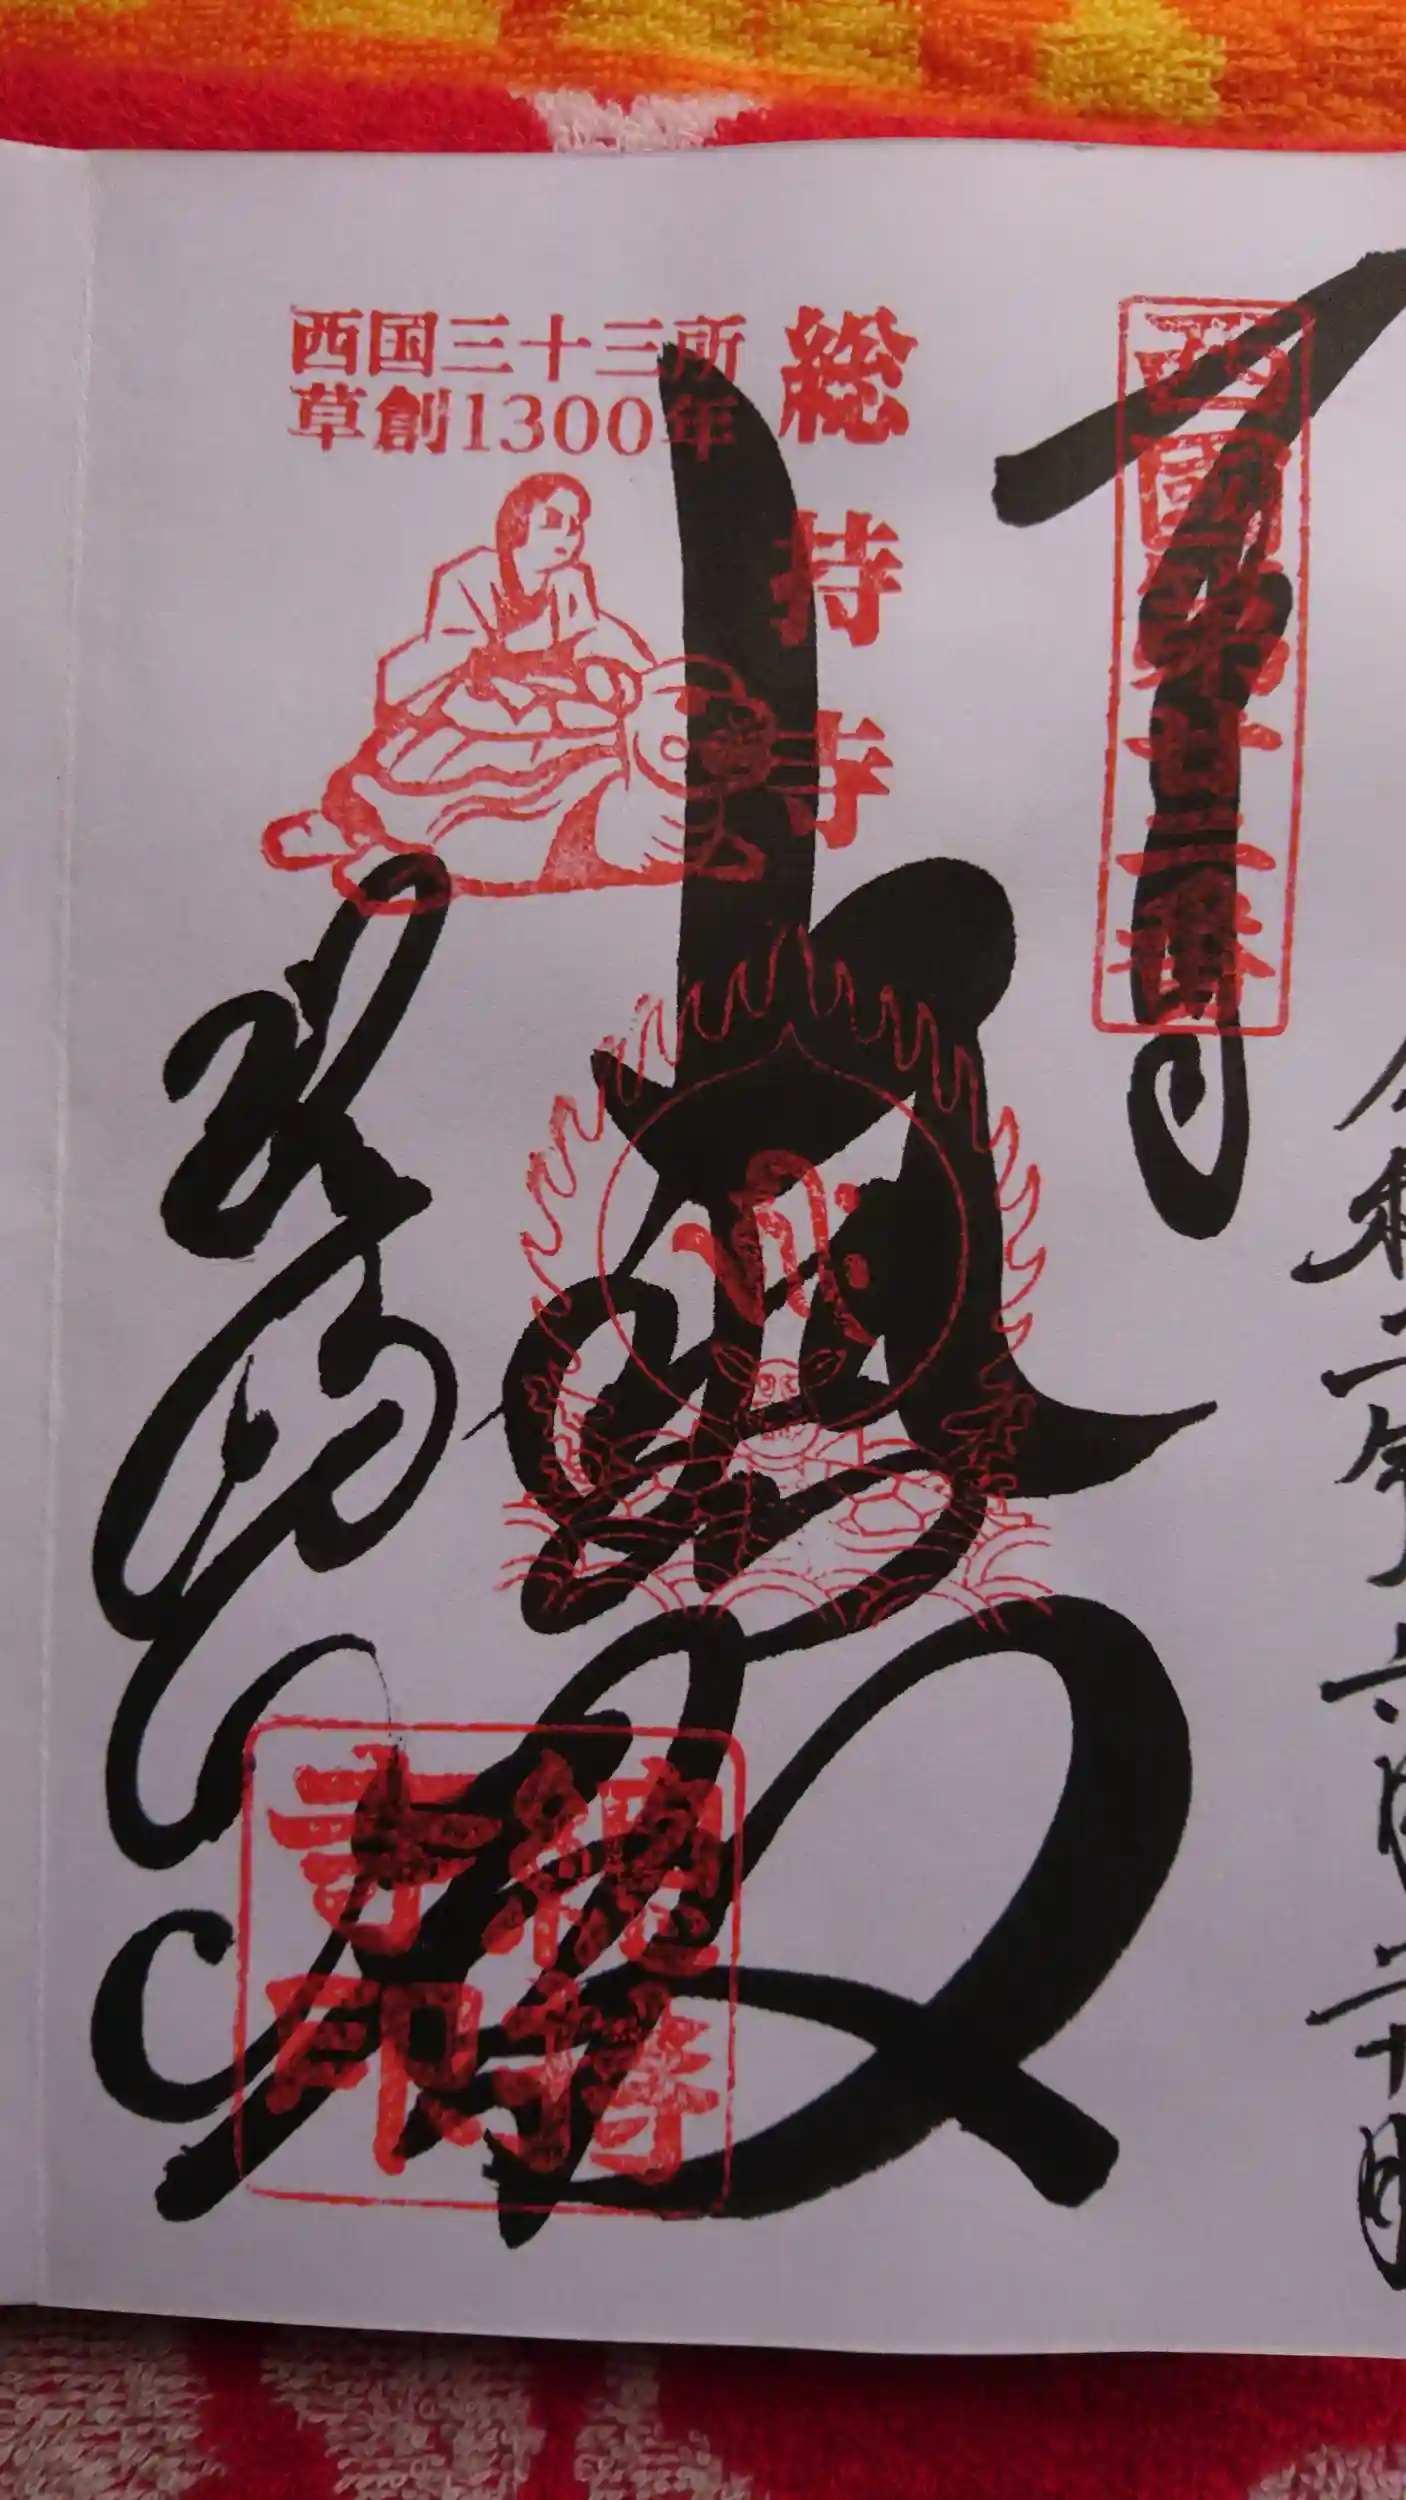 令和二年六月二十日
西國第廿二番
総持寺
西国三十三所
草創1300年
大悲殿
総持寺
總持寺印